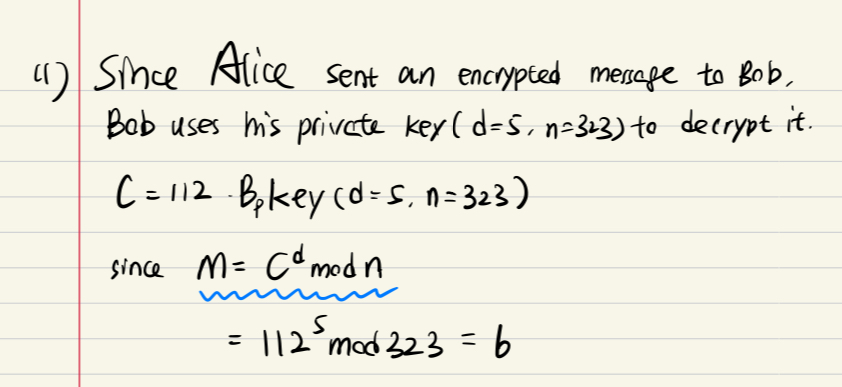 (1) Since Alice sent an encrypted message to Bob,
Bob uses his private key (d=5, n=323) to decrypt it.
C = 112 · Bpkey (d=5, n=323)
since M = C^d mod n
= 112^5 mod 323 = 6